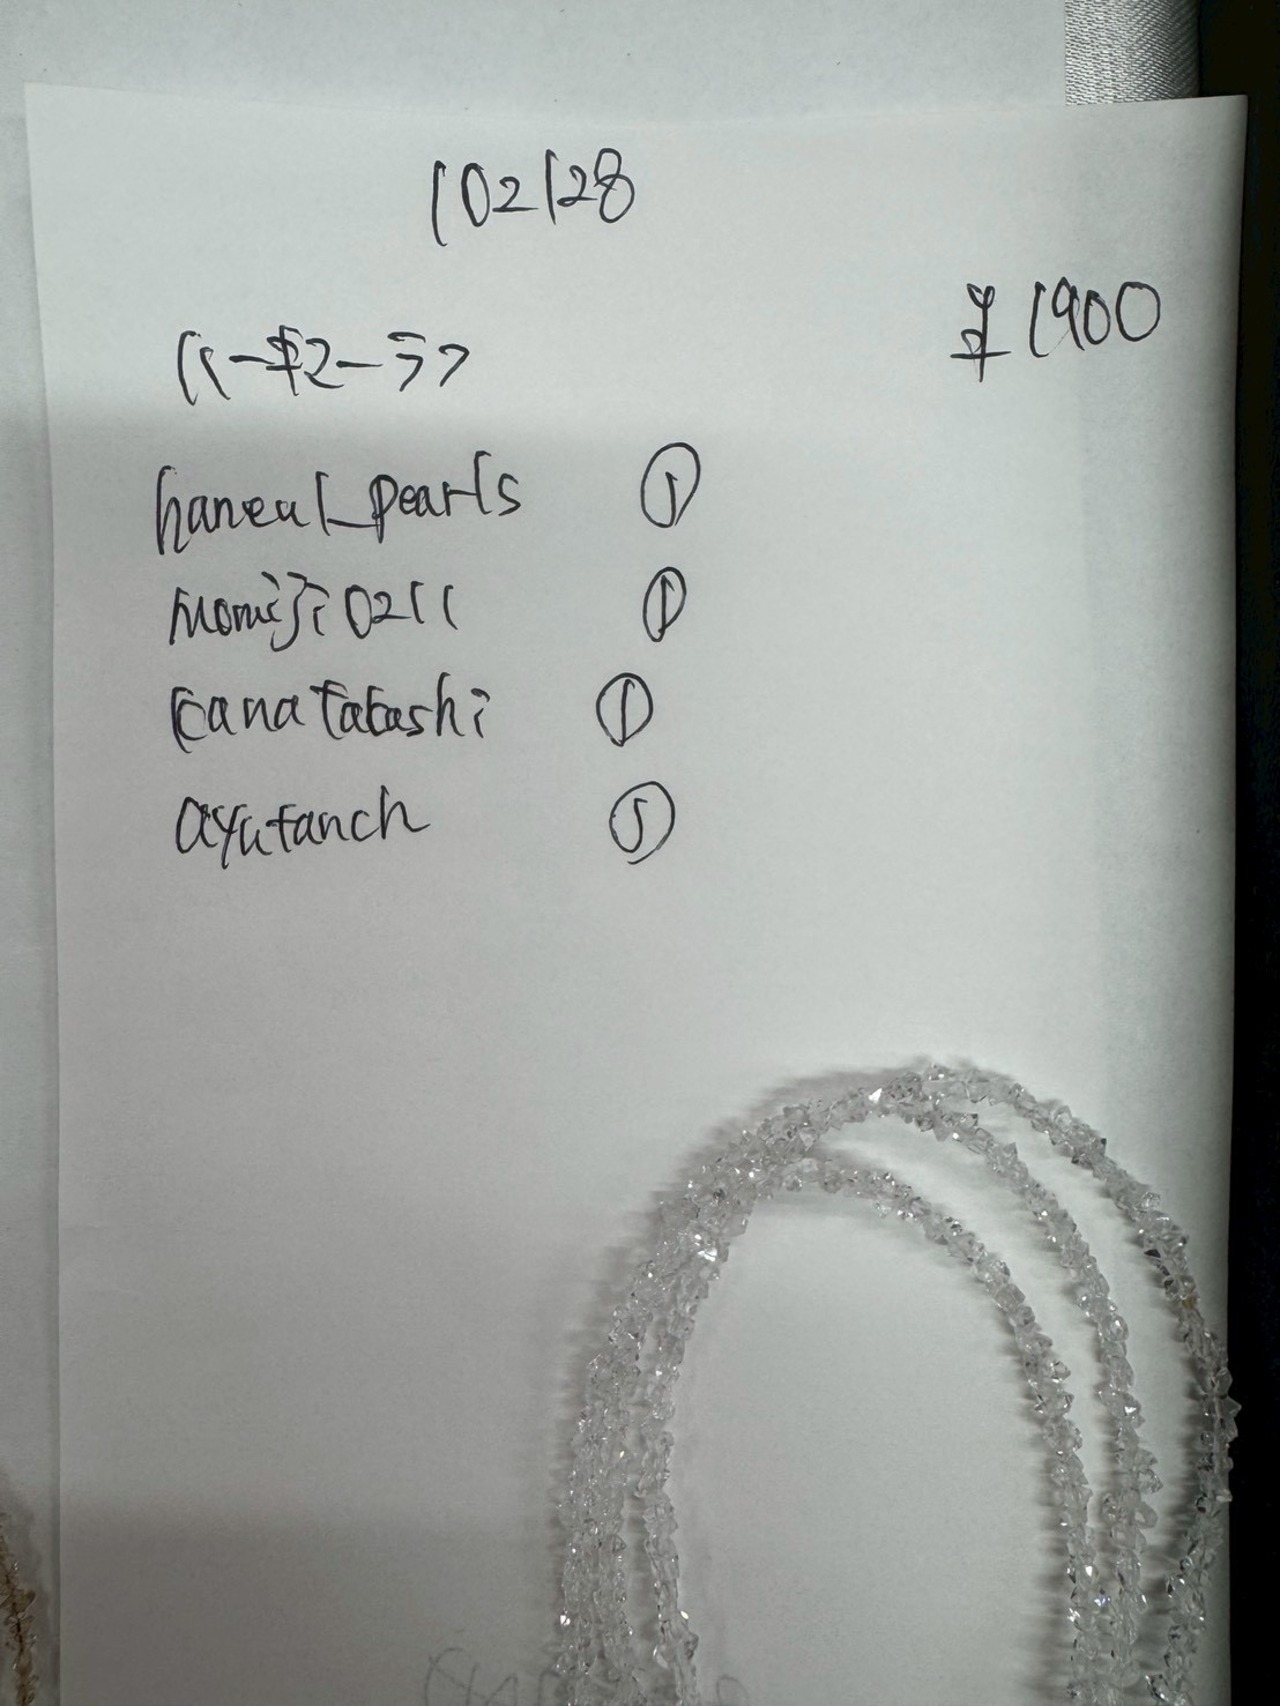 102128
¥1900
haneul_pearls ①
momiji0211 ①
kanatakashi ①
ayutanch ①